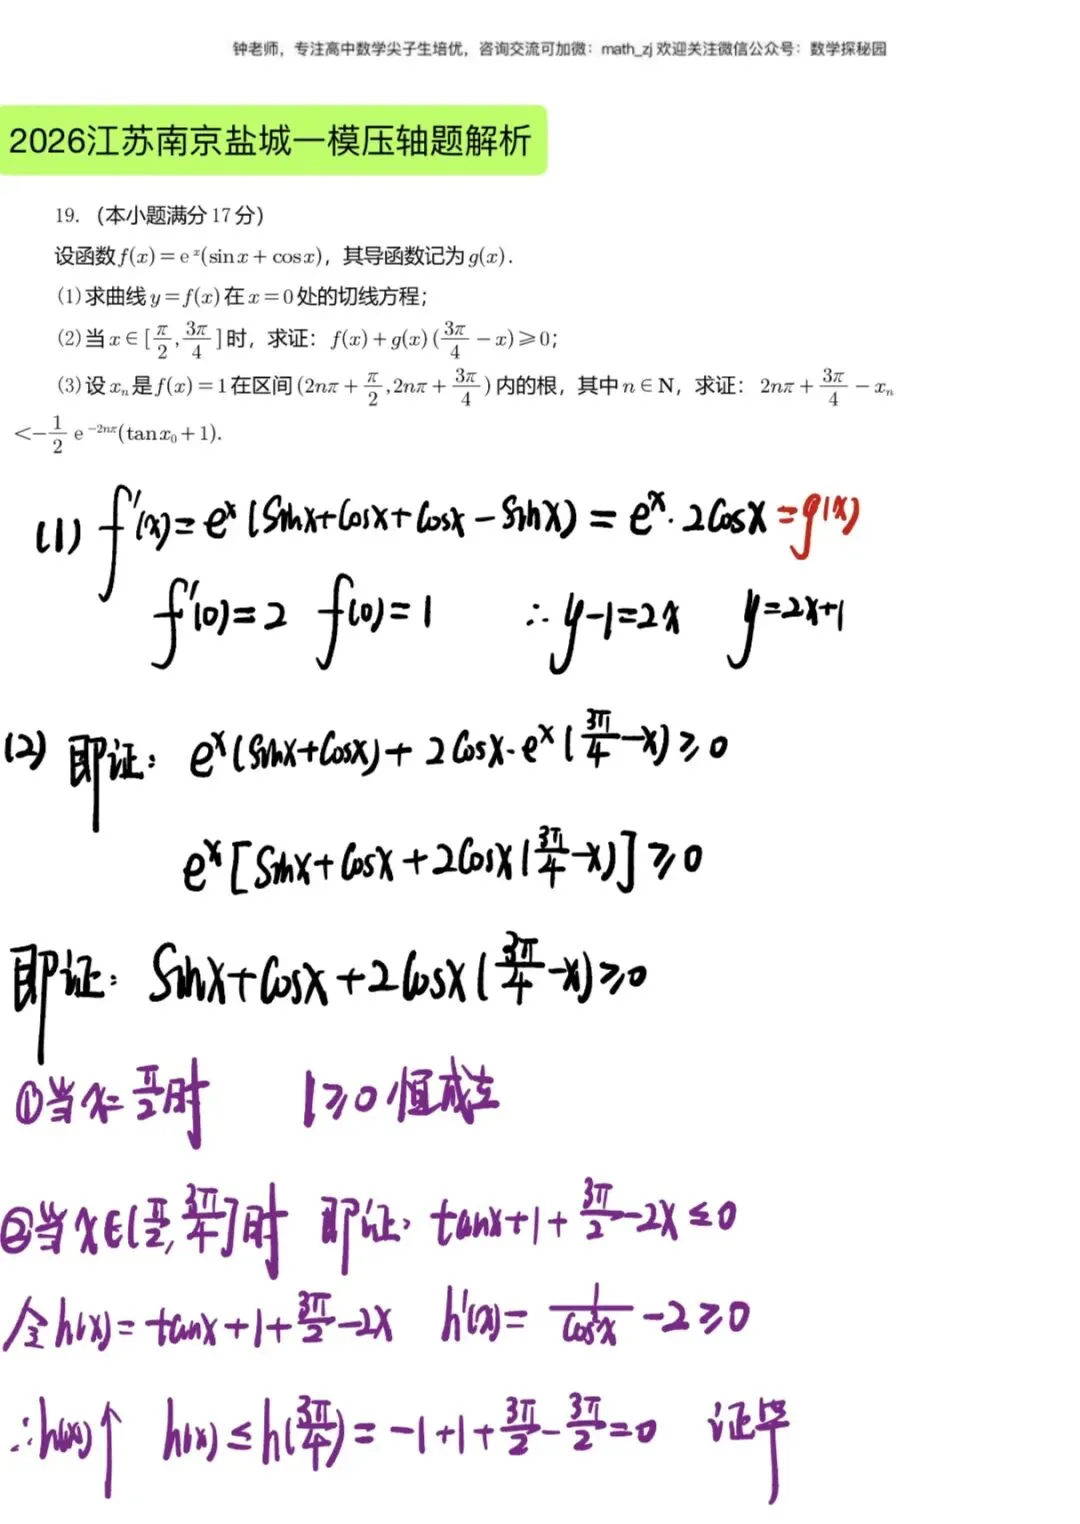 钟老师，专注高中数学尖子生培优，咨询交流可加微：math_zj 欢迎关注微信公众号：数学探秘园
2026江苏南京盐城一模压轴题解析
19.（本小题满分17分）
设函数f(x)=eˣ(sinx+cosx)，其导函数记为g(x).
(1)求曲线y=f(x)在x=0处的切线方程；
(2)当x∈[π/2,3π/4]时，求证：f(x)+g(x)(3π/4-x)≥0；
(3)设xₙ是f(x)=1在区间(2nπ+π/2,2nπ+3π/4)内的根，其中n∈N，求证：2nπ+3π/4-xₙ
<-1/2 e⁻²ⁿᵖ(tanx₀+1).
(1) f'(x)=eˣ(sinx+cosx+cosx-sinx)=eˣ·2cosx=g(x)
f'(0)=2 f(0)=1 ∴y-1=2x y=2x+1
(2) 即证：eˣ(sinx+cosx)+2cosx·eˣ(3π/4-x)≥0
eˣ[sinx+cosx+2cosx(3π/4-x)]≥0
即证：sinx+cosx+2cosx(3π/4-x)≥0
①当x=π/2时 1≥0恒成立
②当x∈(π/2,3π/4]时 即证：tanx+1+3π/2-2x≤0
令h(x)=tanx+1+3π/2-2x h'(x)=1/cos²x-2≥0
∴h(x)↑ h(x)≤h(3π/4)=-1+1+3π/2-3π/2=0 证毕